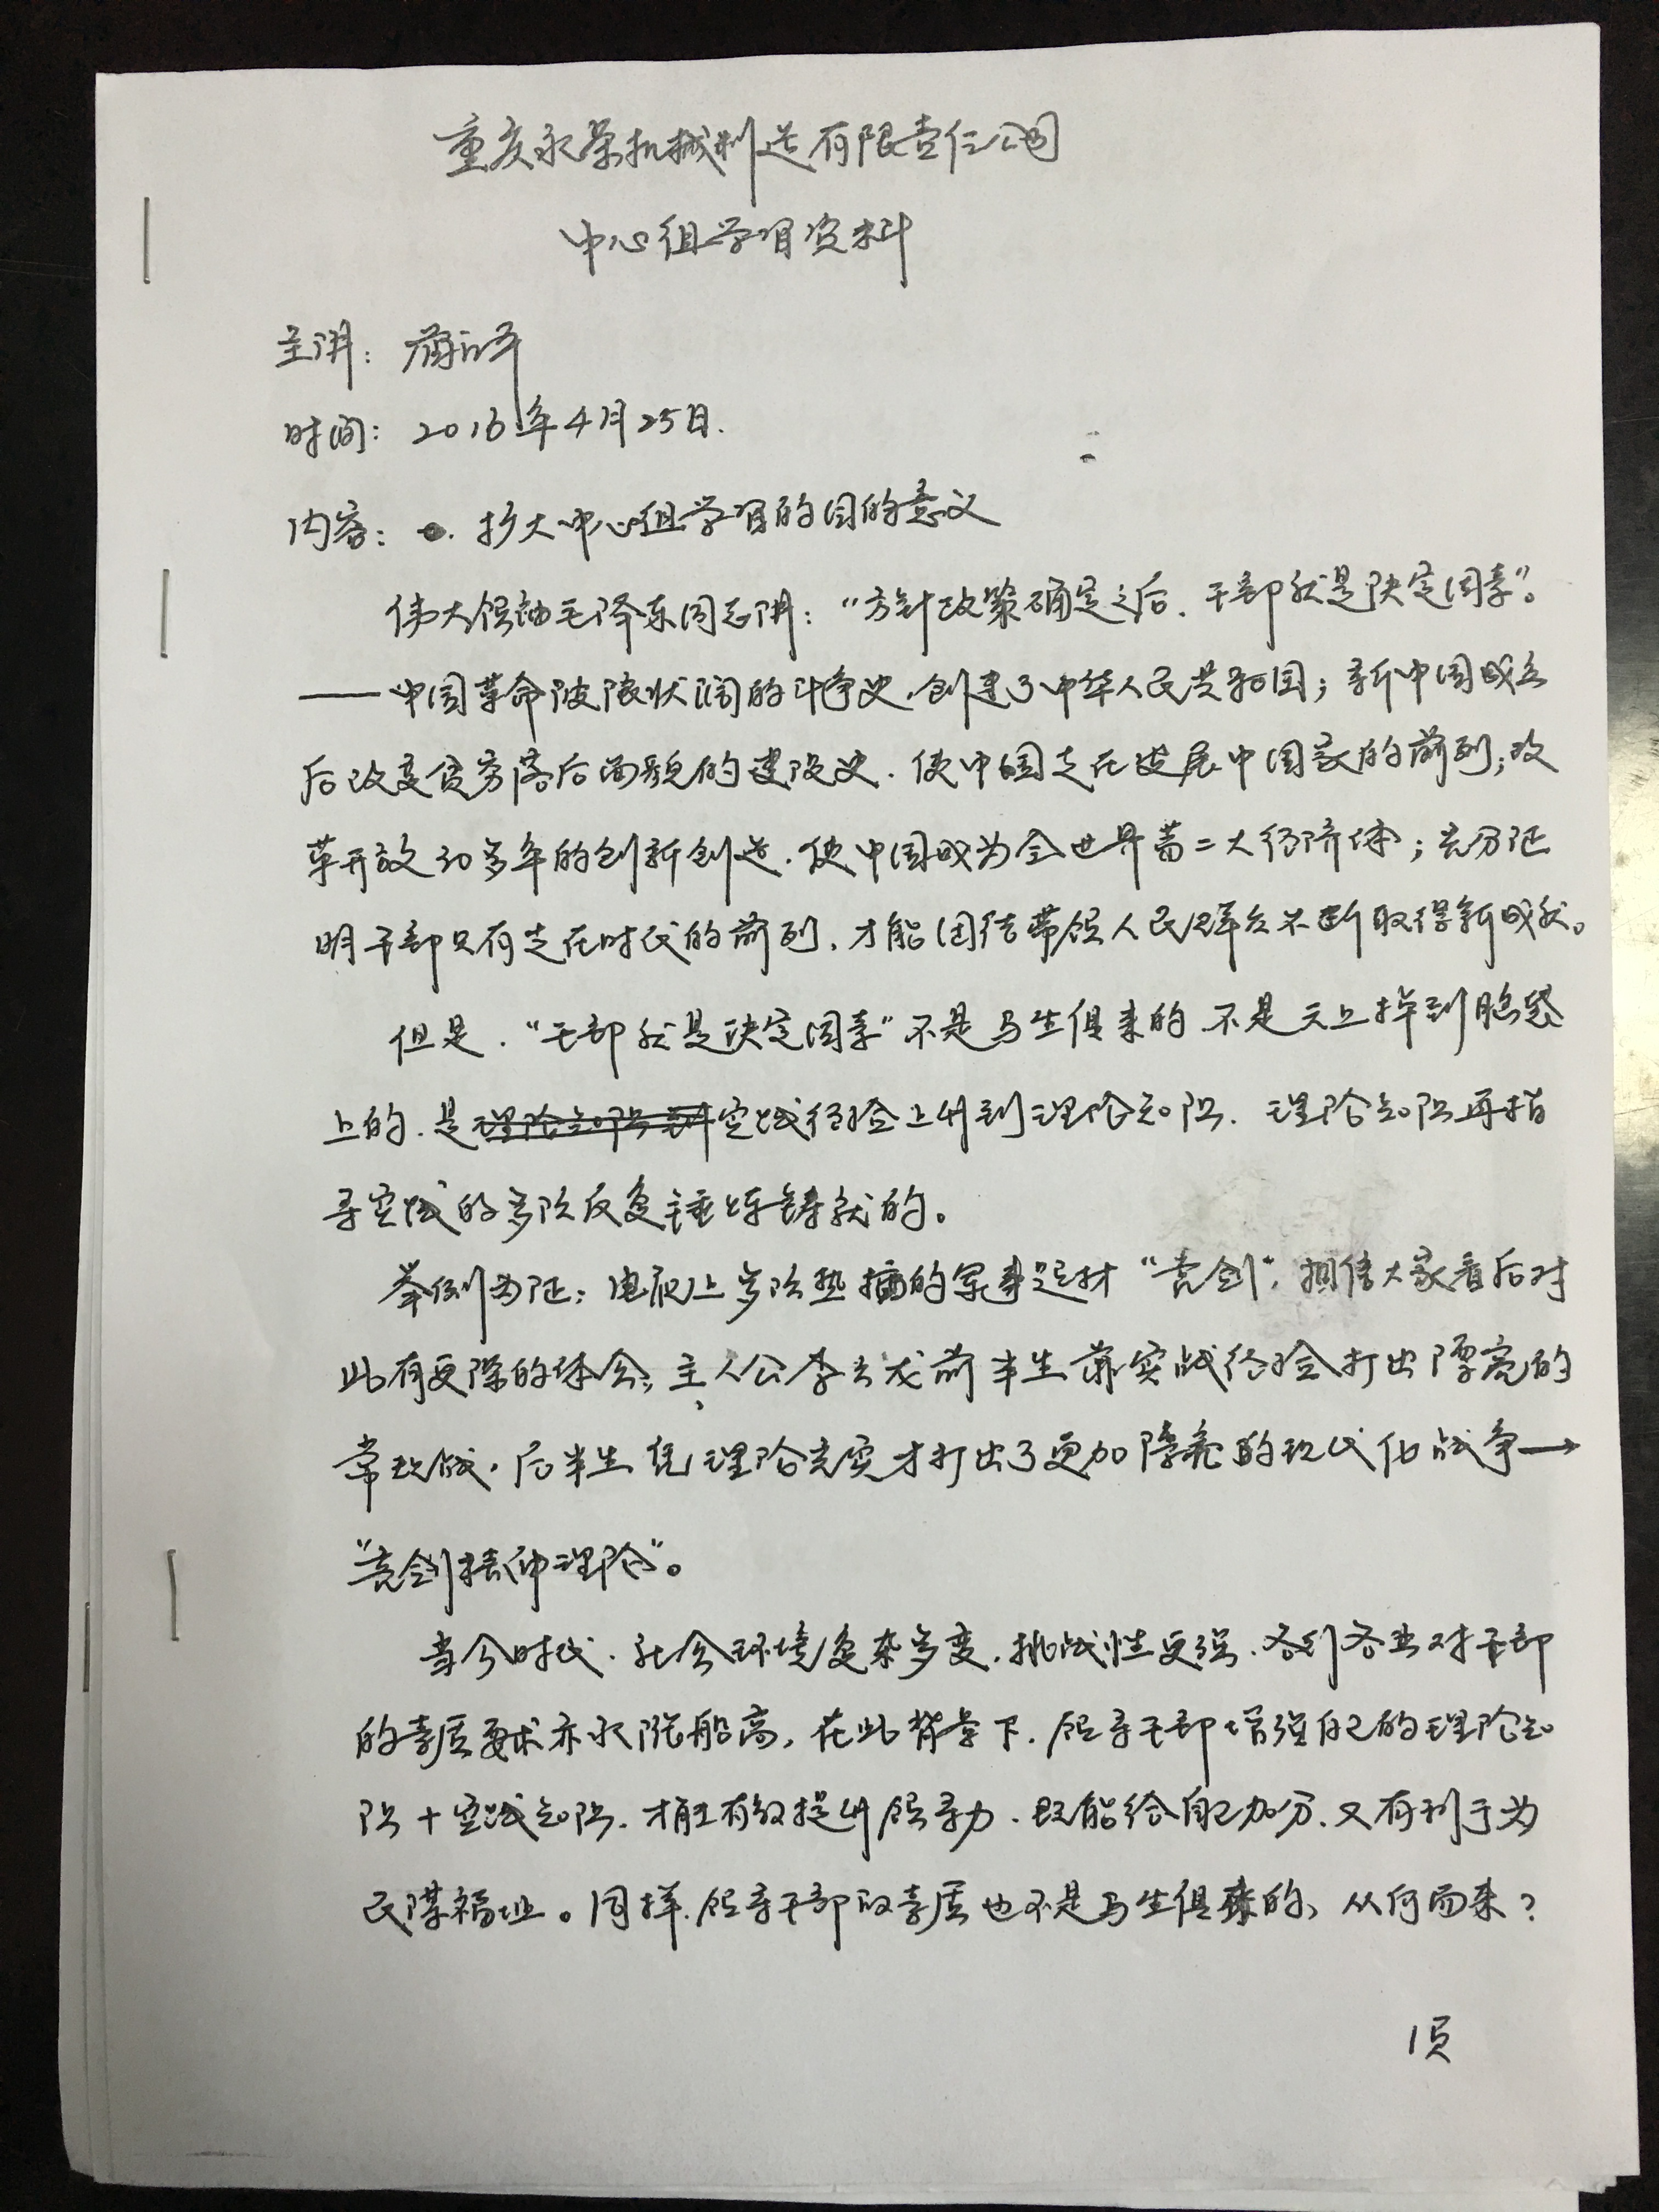 重庆永荣机械制造有限责任公司
中心组学习资料
主讲：蒋
时间：2016年4月25日.
内容： 扩大中心组学习的目的意义
伟大领袖毛泽东同志讲：“方针政策确定之后，干部就是决定因素”。
——中国革命波澜状阔的斗争史，创建了中华人民共和国；新中国成立
后改变贫穷落后面貌的建设史，使中国走在发展中国家的前列；改
革开放30多年的创新创造，使中国成为全世界第二大经济体；充分证
明干部只有走在时代的前列，才能团结带领人民群众不断取得新成就。
但是，“干部就是决定因素”不是与生俱来的，不是天上掉到脑袋
上的，是理论知识到实践经验上升到理论知识，理论知识再指
导实践的多次反复锤炼铸就的。
举例为证：电视上多次热播的军事题材“亮剑”，相信大家看后对
此有更深的体会；主人公李云龙前半生靠实战经验打出漂亮的
常规战，后半生凭理论充实才打出了更加漂亮的现代化战争→
“亮剑精神理论”。
当今时代，社会环境复杂多变，挑战性更强，各行各业对干部
的素质要求亦水涨船高，在此背景下，领导干部增强自己的理论知
识+实践知识，才能有效提升领导力，既能给自己加分，又有利于为
民谋福祉。同样，领导干部的素质也不是与生俱来的，从何而来？
1页